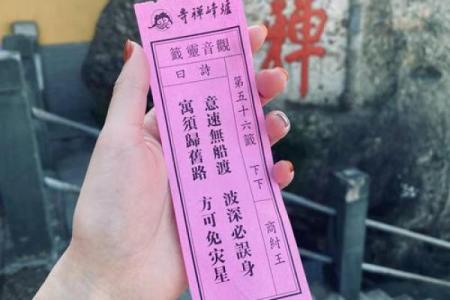 爐峰禪寺
觀音靈籤
詩曰
第五十六籤 下下 商紂王
意速無船渡 波深必誤身
寓須歸舊路 方可免灾星
禪